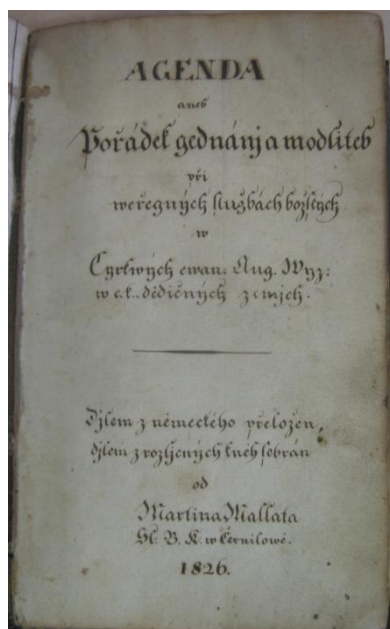 AGENDA
aneb
Pořádek gednánj a modliteb
při
weřegných službách božských
w
Cyrkwých ewan. Aug. Wyz:
w c.k. dědičných zemjch.
Djlem z německého přeložen,
djlem z rozličných kněh sebrán
od
Martina Mallata
Sl. B. K. w Černilowě.
1826.